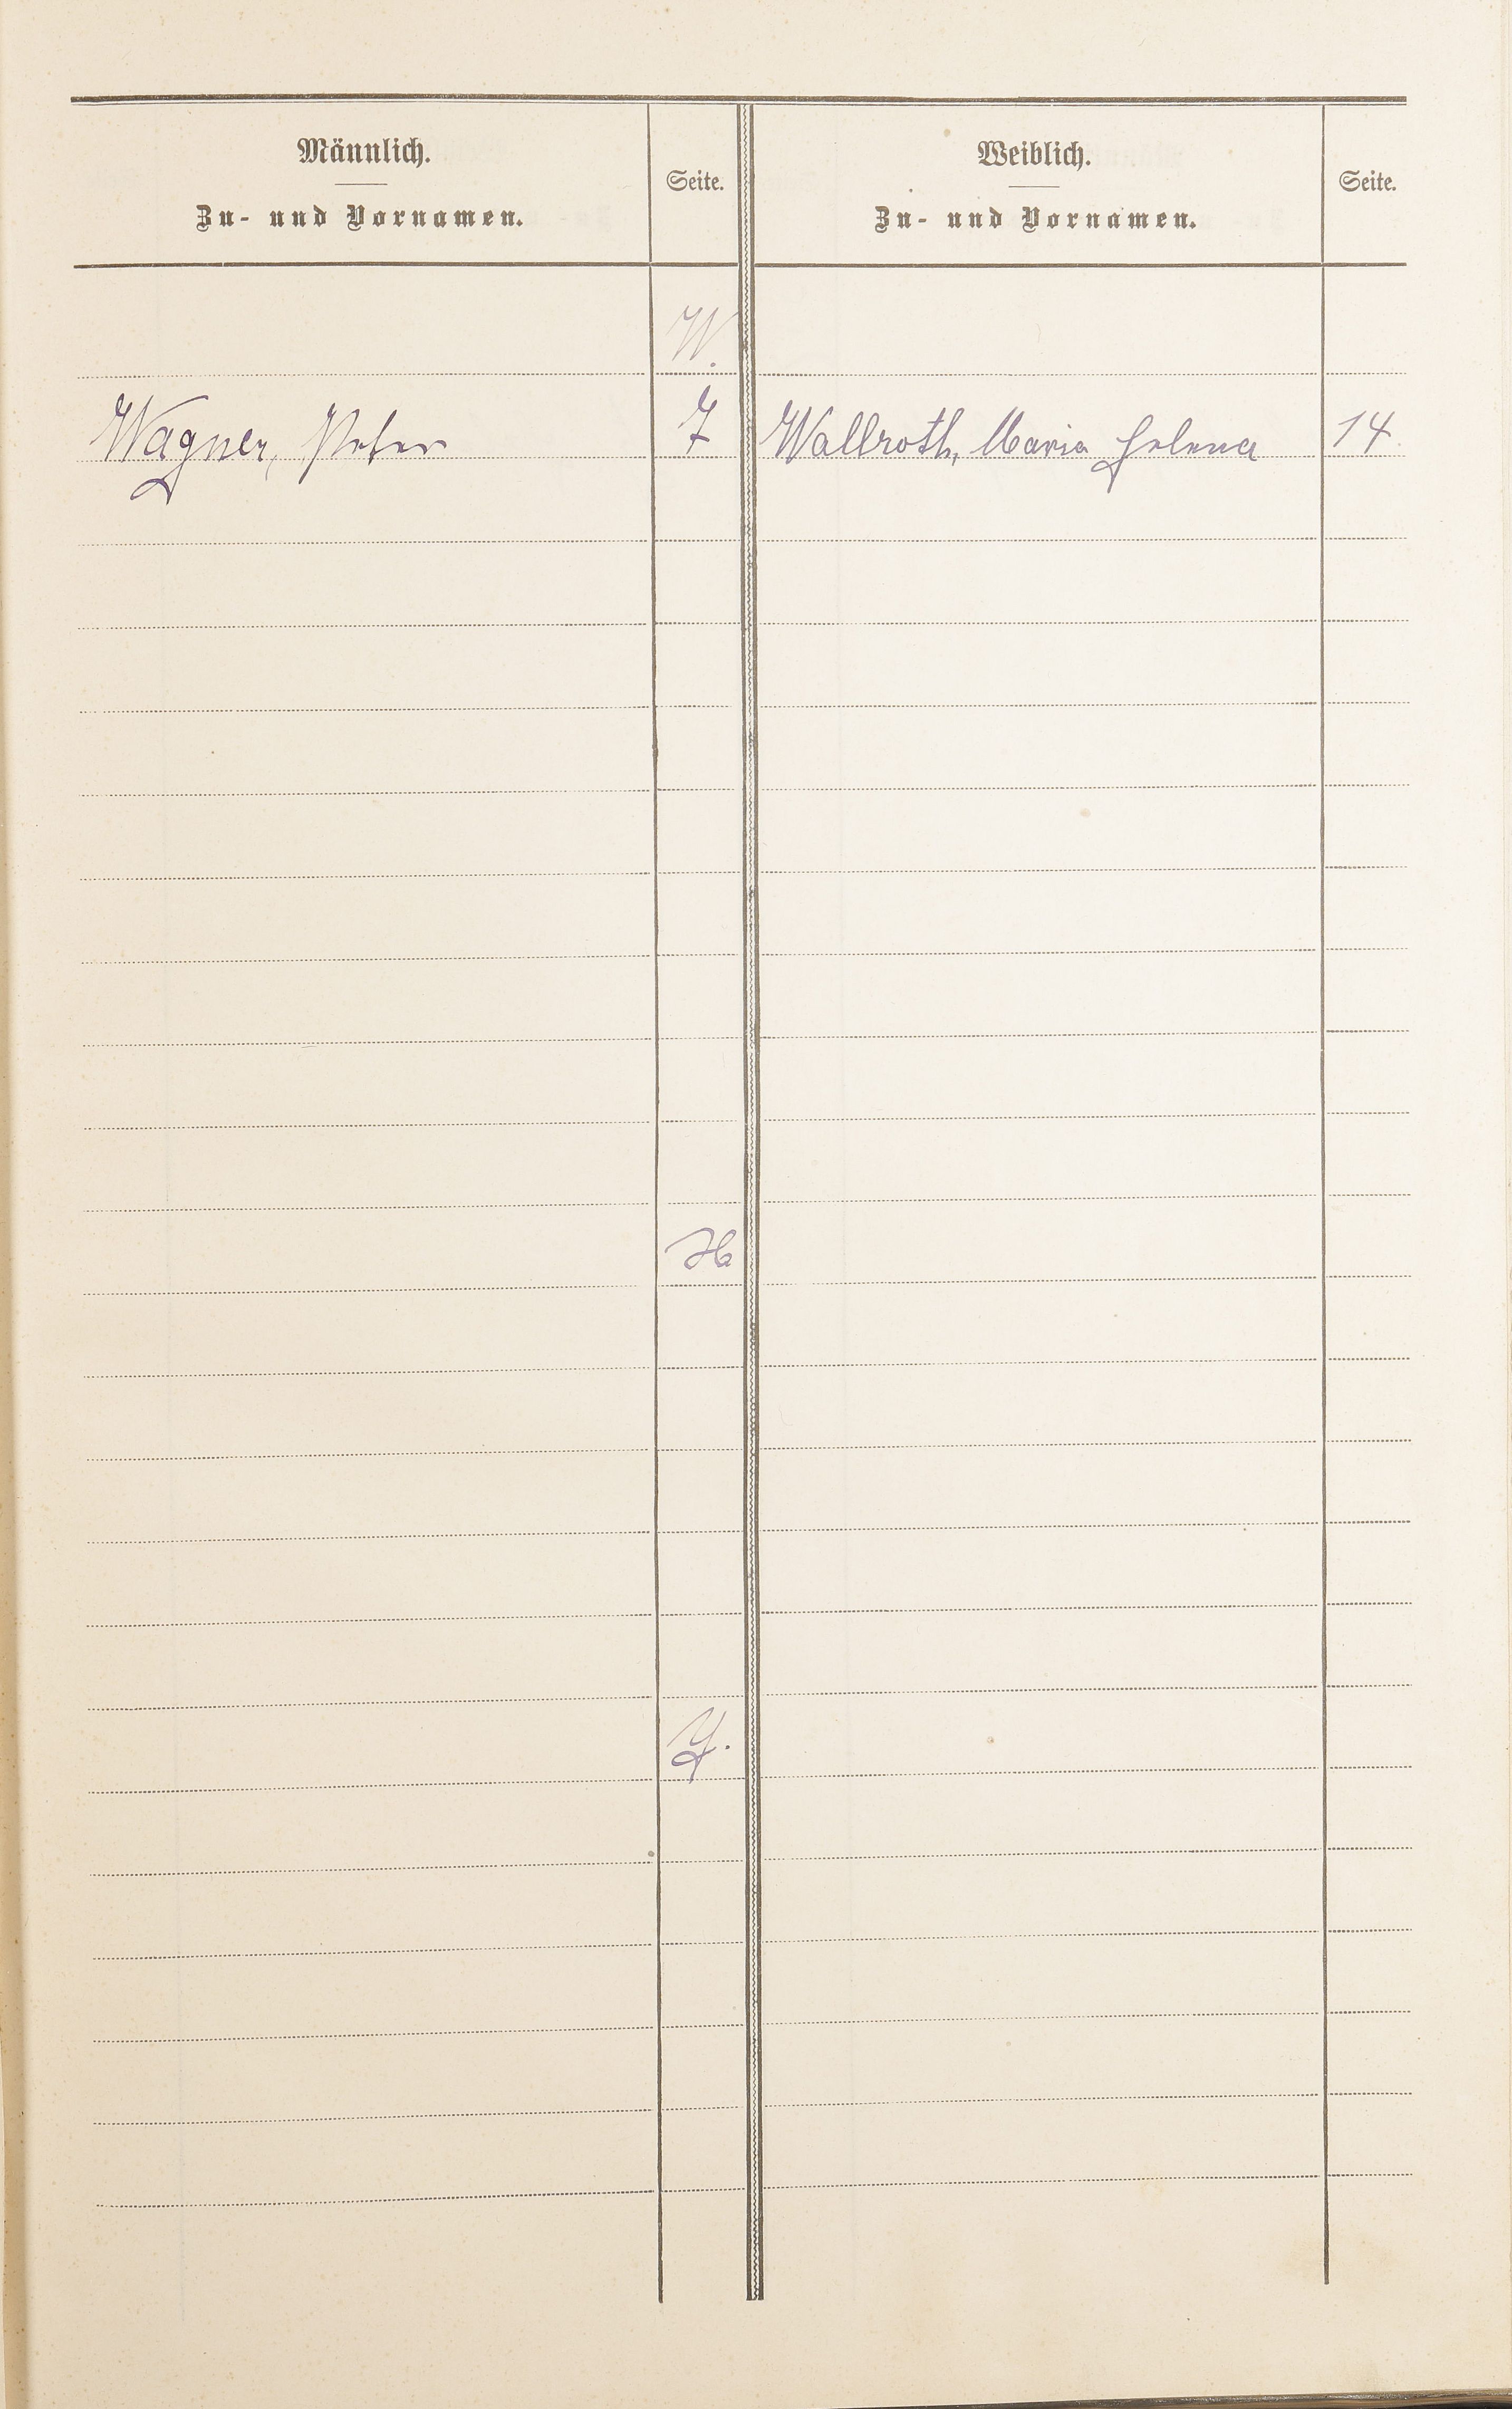 Männlich.
Zu- und Vornamen.
Seite.
Weiblich.
Zu- und Vornamen.
Seite.
W.
Wagner, Peter 7 Wallroth, Maria Helena 14
X
Y.